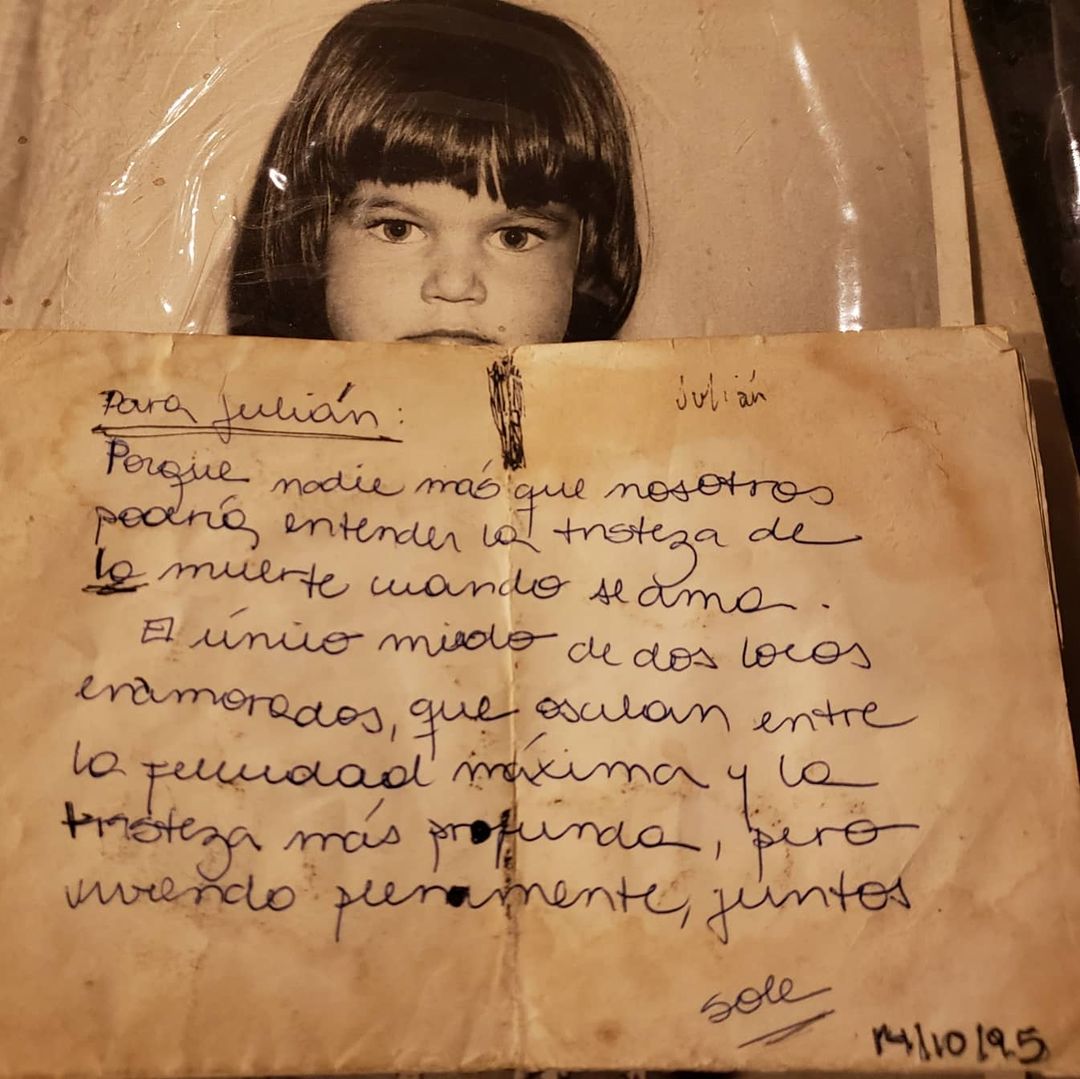 Para Julián:
Julián
Porque nadie más que nosotros
podría entender la tristeza de
la muerte cuando se ama.
El único miedo de dos locos
enamorados, que oscilan entre
la felicidad máxima y la
tristeza más profunda, pero
viviendo plenamente, juntos
Sole
14/10/95